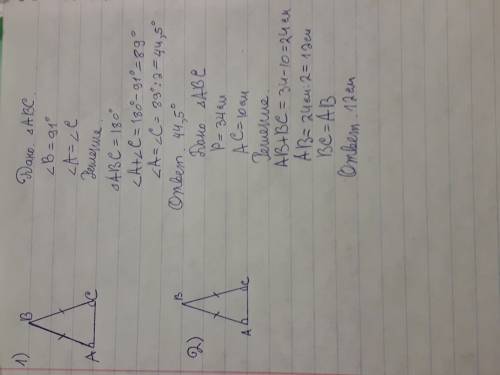 1)
B
A
C
Дано: ΔABC.
∠B = 91°
∠A = ∠C
Решение
ΔABC = 180°
∠A+∠C = 180° - 91° = 89°
∠A = ∠C = 89° : 2 = 44,5°
Ответ: 44,5°
2)
B
A
C
Дано: ΔABC
P = 34 см
AC = 10 см
Решение
AB + BC = 34 - 10 = 24 см
AB = 24 см : 2 = 12 см
BC = AB
Ответ: 12 см